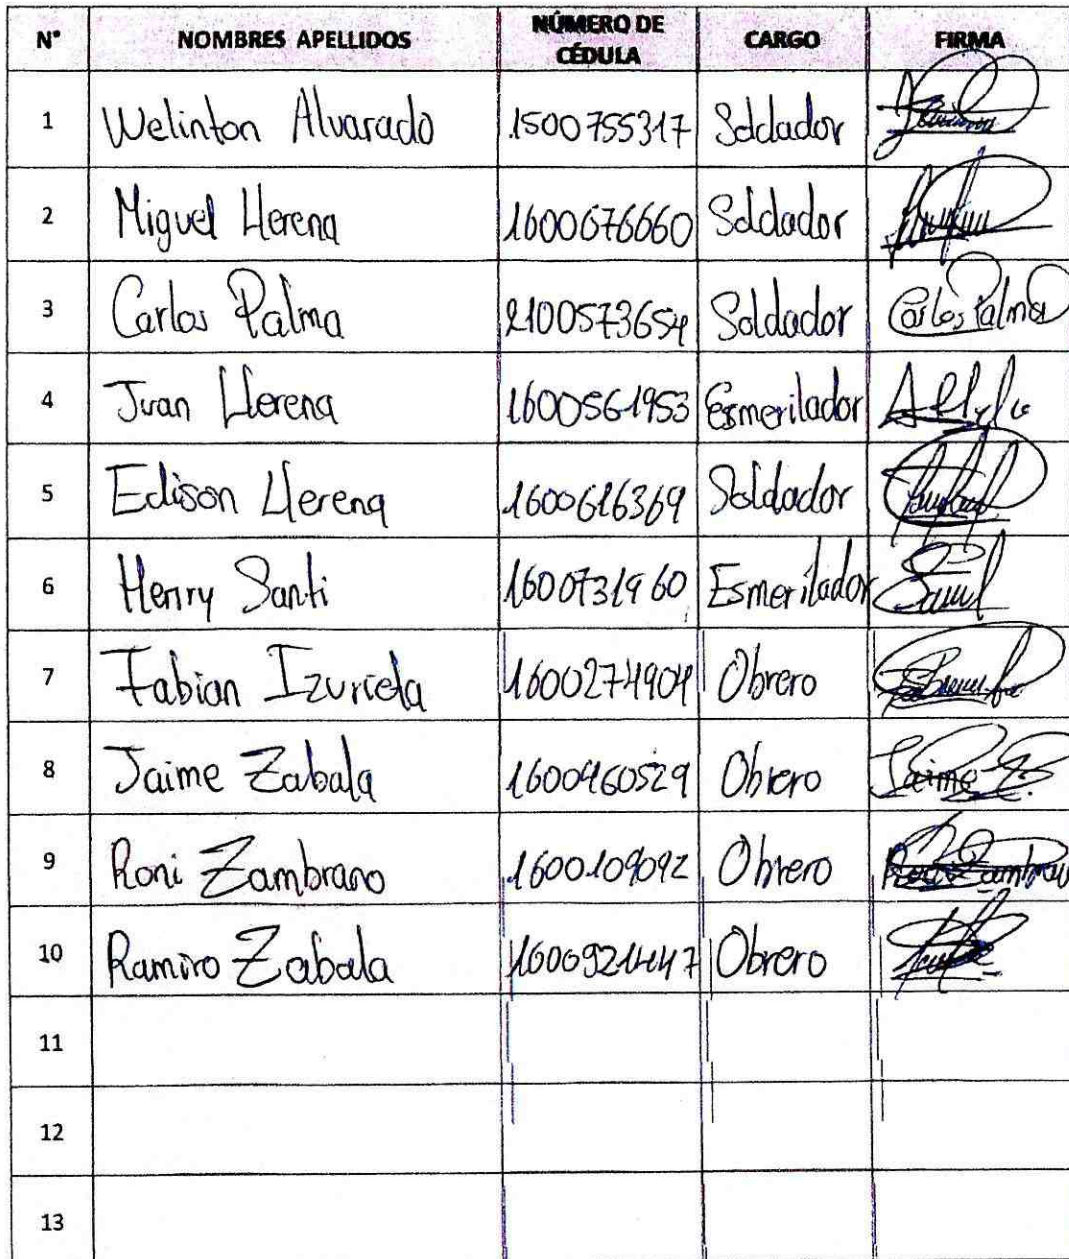 N° NOMBRES APELLIDOS NÚMERO DE CÉDULA CARGO FIRMA
1 Welinton Alvarado 1500755317 Soldador
2 Miguel Llerena 1600676660 Soldador
3 Carlos Palma 2100573654 Soldador Carlos Palma
4 Juan Llerena 1600561953 Esmerilador
5 Edison Llerena 1600616369 Soldador
6 Henry Santi 1600731960 Esmerilador
7 Fabian Izurieta 1600274904 Obrero
8 Jaime Zabala 1600460529 Obrero Jaime Z.
9 Roni Zambrano 1600109092 Obrero Roni Zambrano
10 Ramiro Zabala Obrero
11
12
13